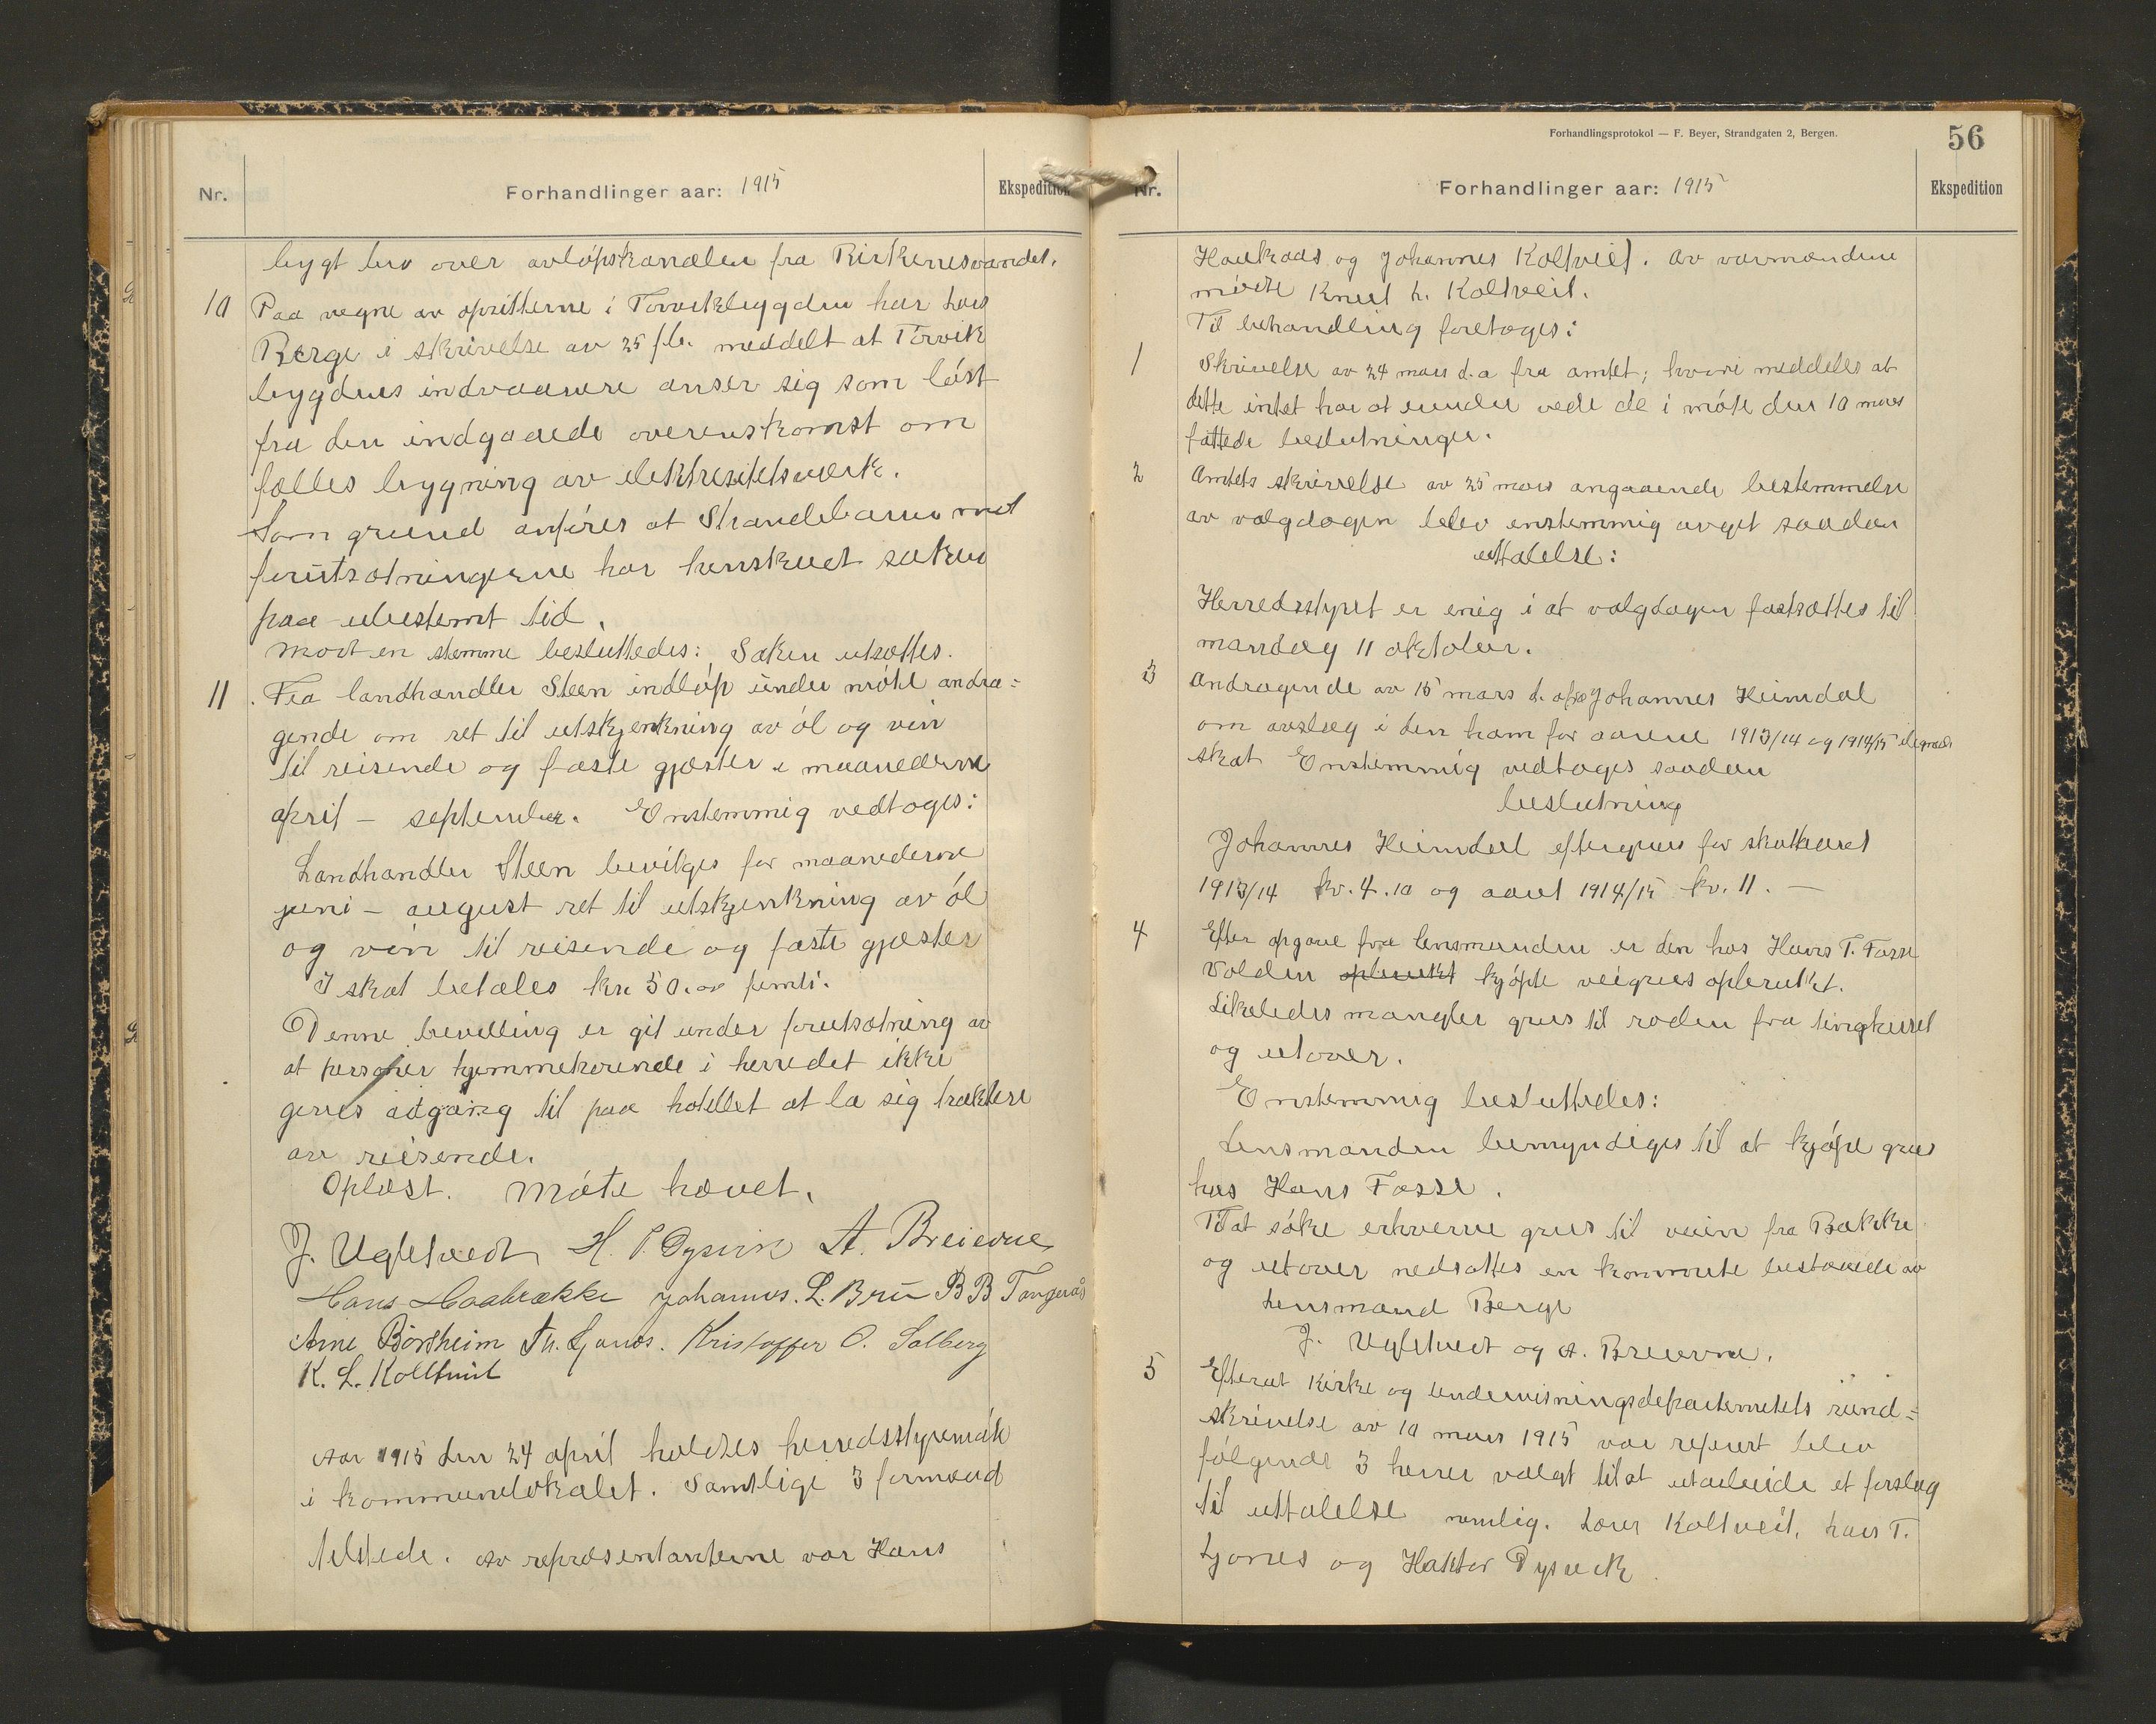 Nr.
Forhandlinger aar: 1915
Ekspedition
bygt bro over avløpskanalen fra Birkenesvandet.
10 Paa vegne av opsitterne i Torvikbygden har Lars
Berge i skrivelse av 25 fb. meddelt at Torvik
bygdens indvaanere anser sig som løst
fra den indgaaede overenskomst om
fælles bygning av elektrisitetsverk.
Som grund anføres at Strandebarm mot
forutsætningerne har henskutt saken
paa ubestemt tid.
Mot en stemme besluttedes: Saken utsættes.
11 Fra landhandler Steen indløp under møtet andra=
gende om ret til utskjenkning av øl og vin
til reisende og faste gjæster i maanederne
april – september. Enstemmig vedtoges:
Landhandler Steen bevilges for maanederne
juni – august ret til utskjenkning av øl
og vin til reisende og faste gjæster
I skat betales kr 50.00 femti.
Denne bevilling er git under forutsætning av
at personer hjemmehørende i herredet ikke
gives adgang til paa hotellet at la sig traktere
av reisende.
Oplæst. Møte hævet.
J. Ugletvedt H. Dysvik A. Breievne
Hans Haabrekke Johannes L. Bru B B Tangerås
Arne Børsheim Th. Ljones. Kristoffer O. Solberg
K. L. Koltveit
Aar 1915 den 24 april holdtes herredsstyremøte
i kommunelokalet. Samtlige 3 formænd
tilstede. Av repræsentanterne var Hans
Forhandlingsprotokol — F. Beyer, Strandgaten 2, Bergen.
56
Nr.
Forhandlinger aar: 1915
Ekspedition
Haukaas og Johannes Koltveit. Av varmændene
møtte Knut L. Koltveit.
Til behandling foretoges:
1 Skrivelse av 24 mars d.a fra amtet; hvori meddeles at
dette intet har at erindre vedr de i møte den 10 mars
fattede beslutninger.
2 Amtets skrivelse av 25 mars angaaende bestemmelse
av valgdagen blev enstemmig avgit saadan
uttalelse:
Herredsstyret er enig i at valgdagen fastsættes til
mandag 11 oktober.
3 Andragende av 15 mars d. a fra Johannes Heimdal
om avslag i den ham for aarene 1913/14 og 1914/15 ilignede
skat Enstemmig vedtoges saadan
beslutning
Johannes Heimdal eftergives for skatteaaret
1913/14 kr. 4.10 og aaret 1914/15 kr. 11. —
4 Efter opgave fra lensmanden er den hos Hans T. Fosse
Volden opbruket kjøpte veigrus opbruket.
Likeledes mangler grus til roden fra tinghuset
og utover.
Enstemmig besluttedes:
Lensmanden bemyndiges til at kjøpe grus
hos Hans Fosse.
Til at søke erhverve grus til veien fra Bakke
og utover nedsattes en komite bestaaende av
Lensmand Berge
J. Ugletveit og A. Breievne.
5 Efterat Kirke og undervisningsdepartementets rund=
skrivelse av 10 mars 1915 var referert blev
følgende 3 herrer valgt til at utarbeide et forslag
til uttalelse nemlig. Lars Koltveit, Lars T.
Ljones og Haktor Dysvik